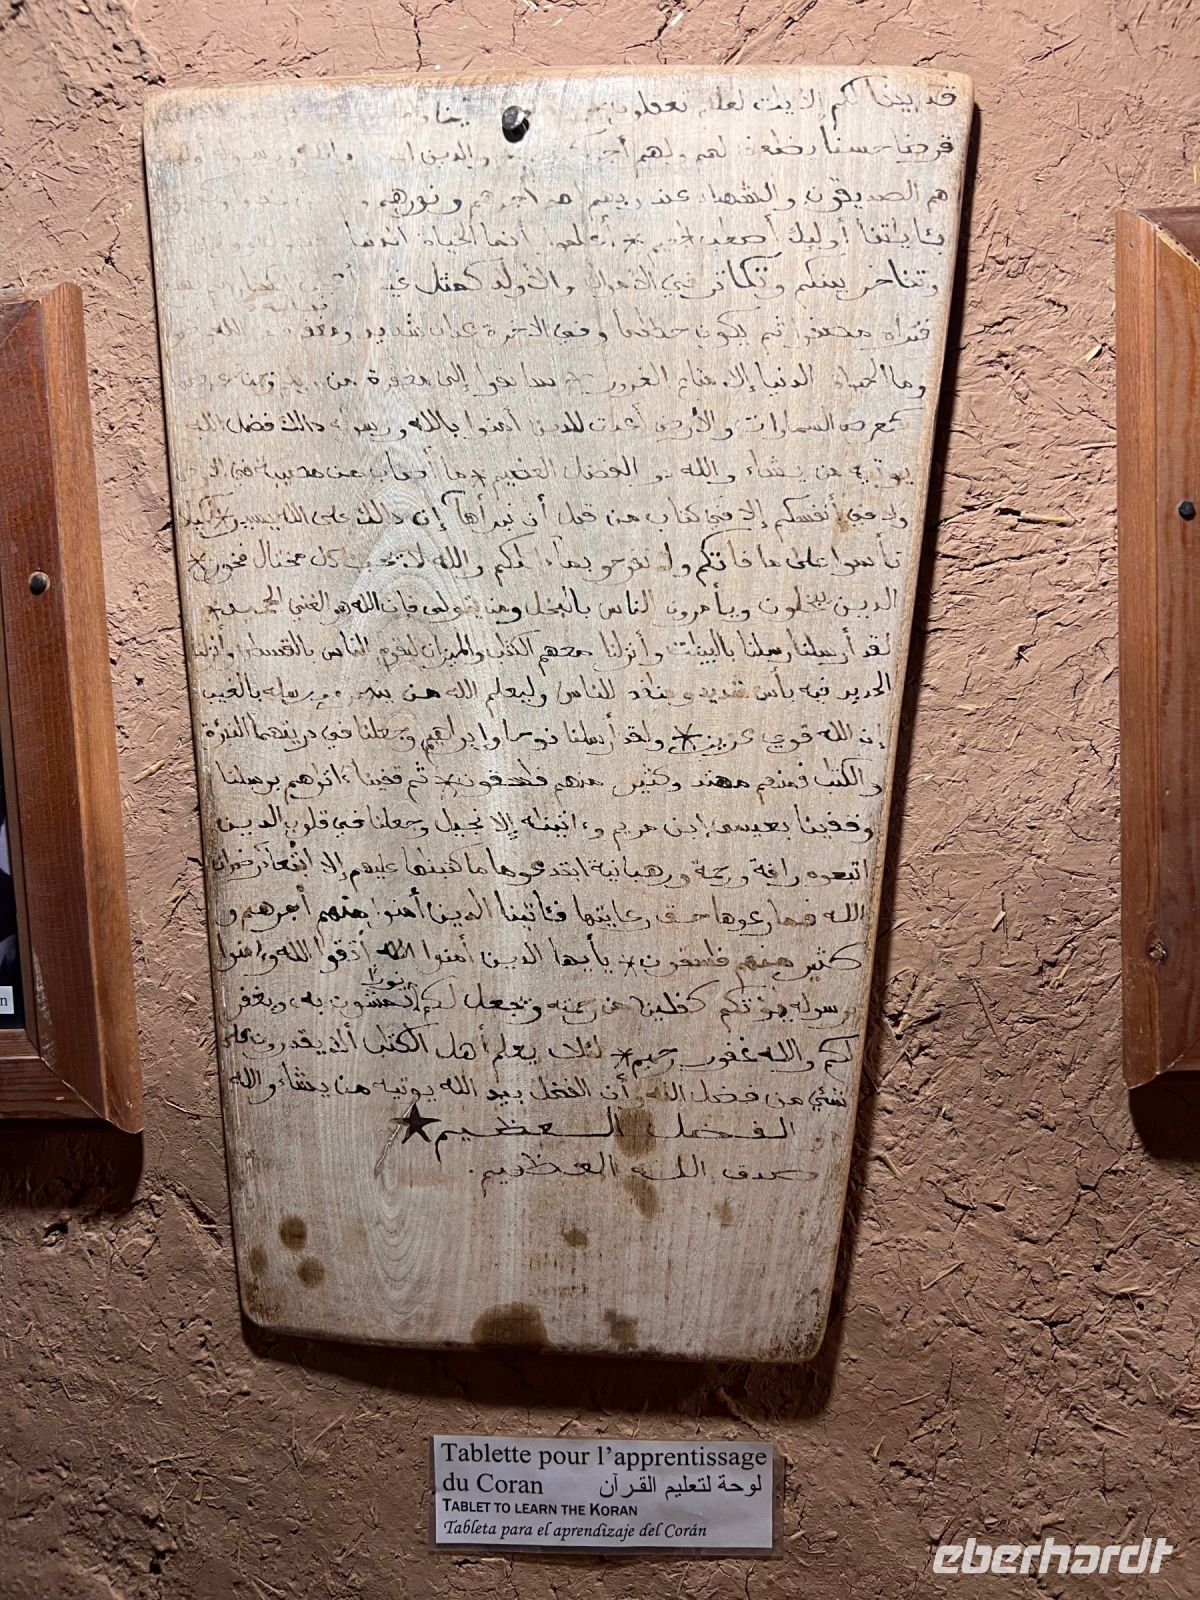 قد بينا لكم الايات لعلكم تعقلون
قرضا حسنا يضعف لهم ولهم أجر والذين امنوا بالله ورسله أوليك
هم الصديقون والشهداء عند ربهم لهم أجرهم ونورهم
بئايتنا أوليك أصحب الجحيم * أعلموا أنما الحياة الدنيا
وتفاخر بينكم وتكاثر في الاموال والاولد كمثل غيث
فتراه مصفرا ثم يكون حطما وفي الاخرة عذاب شديد ومغفرة من الله
وما الحياة الدنيا إلا متاع الغرور * سابقوا إلى مغفرة من ربكم وجنة عرضها
كعرض السماوات والأرض أعدت للذين أمنوا بالله ورسله ذالك فضل الله
يوتيه من يشاء والله ذو الفضل العضيم * ما أصاب من مصيبة في الارض
ولا في أنفسكم إلا في كتاب من قبل أن نبرأها إن ذالك على الله يسير * لكيلا
تأسوا على ما فاتكم ولا تفرحو بماء اتكم والله لا يحب كل مختال فخور *
الذين يبخلون ويأمرون الناس بالبخل ومن يتولى فإن الله هو الغني الحميد *
لقد أرسلنا رسلنا بالبينت وأنزلنا معهم الكتب والميزان ليقوم الناس بالقسط وأنزلنا
الحديد فيه بأس شديد ومنفع للناس وليعلم الله من ينصره ورسله بالغيب
إن الله قوي عزيز * ولقد أرسلنا نوحا وابراهيم وجعلنا في ذريتهما النبوة
والكتب فمنهم مهتد وكثير منهم فسقون * ثم قفينا ءاثرهم برسلنا
وقفينا بعيسى إبن مريم وءاتينه الإنجيل وجعلنا في قلوب الذين
اتبعوه رافة ورحمة ورهبانية ابتدعوها ما كتبنها عليهم إلا ابتغاء رضوان
الله فما رعوها حق رعايتها فئاتينا الذين أمنوا منهم أجرهم و
كثير منهم فسقون * يأيها الذين أمنوا الله أتقوا الله وءامنوا
نورا
برسوله يؤتكم كفلين من رحمته ويجعل لكم تمشون به ويغفر
لكم والله غفور رحيم * لئلا يعلم أهل الكتب ألا يقدرون على
شئي من فضل الله وأن الفضل بيد الله يوتيه من يشاء والله
ذو الفضل العظيم ★
صدق الله العظيم.
Tablette pour l'apprentissage
du Coran لوحة لتعليم القرآن
TABLET TO LEARN THE KORAN
Tableta para el aprendizaje del Corán
n
eberhardt